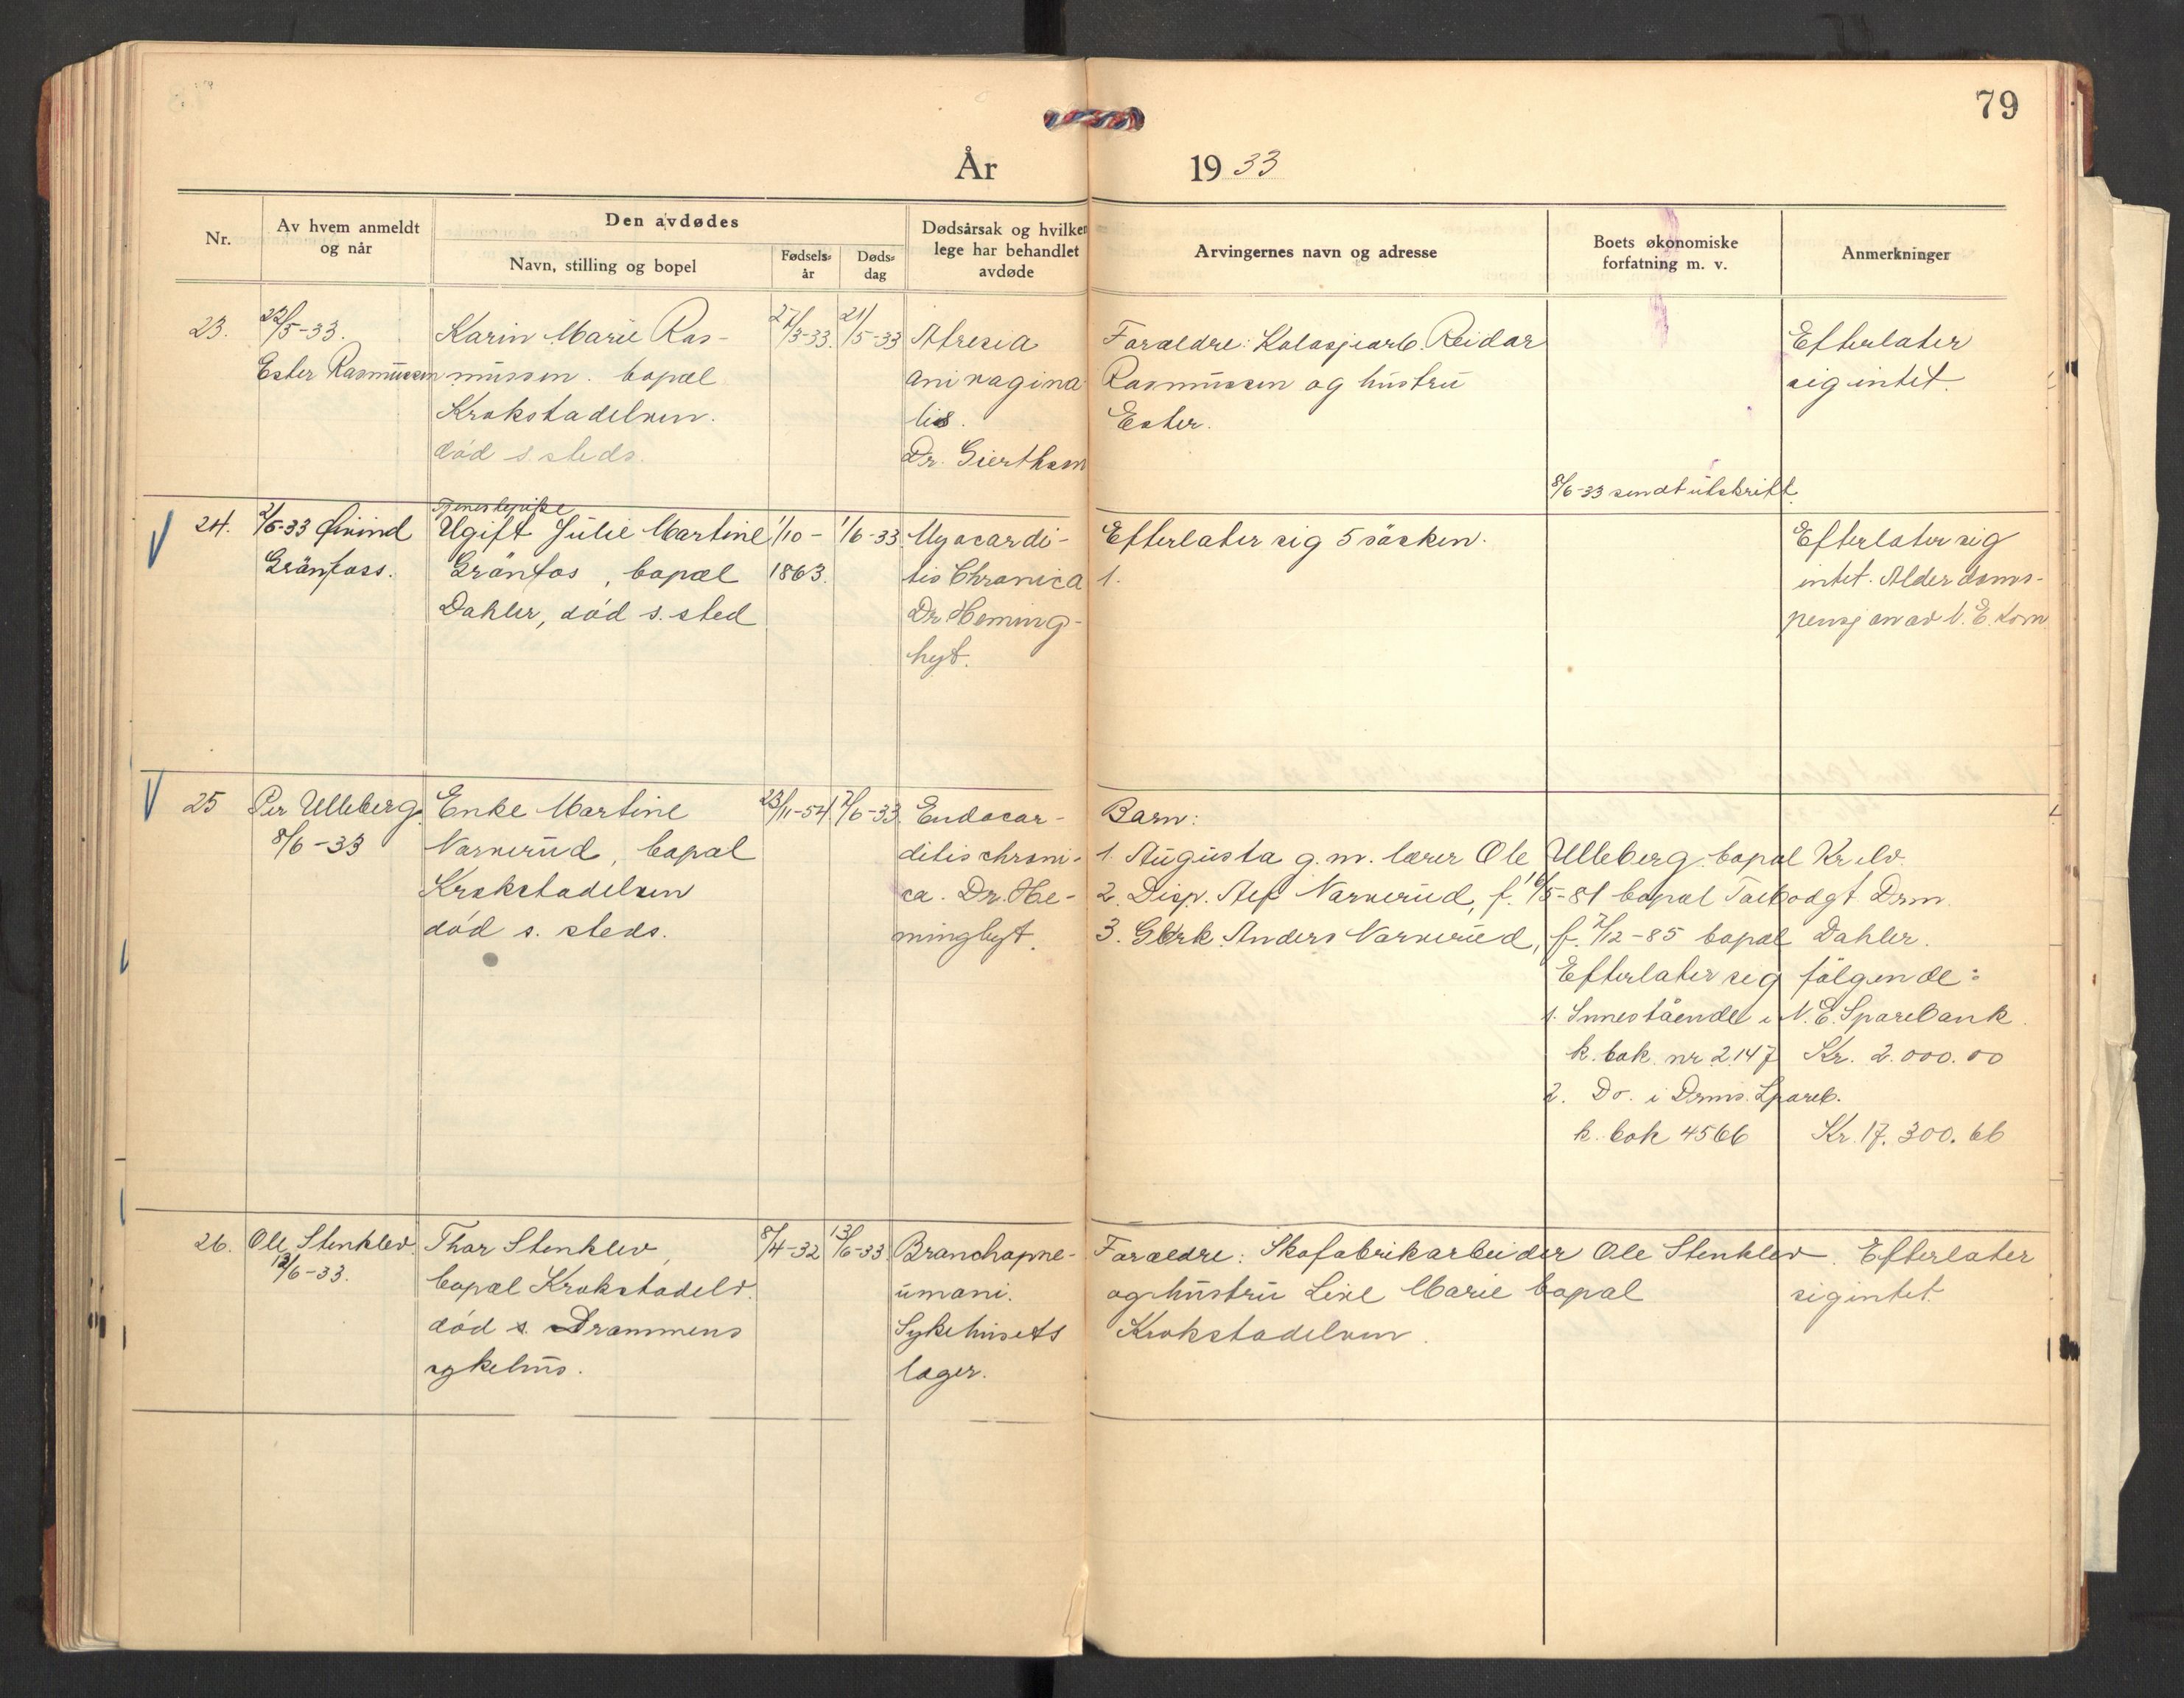 79
År 1933
Nr.
Av hvem anmeldt
og når
Den avdødes
Navn, stilling og bopel
Fødsels-
år
Døds-
dag
Dødsårsak og hvilken
lege har behandlet
avdøde
Arvingernes navn og adresse
Boets økonomiske
forfatning m. v.
Anmerkninger
23.
22/5-33.
Ester Rasmussen
Karin Marie Ras-
mussen. bopæl
Krokstadelven.
död s. steds.
21/5-33
Atresia
ani vagina
lis.
Dr. Gierthsen
Forældre: Kolosjearb. Reidar
Rasmussen og hustru
Ester.
8/6-33 sendt utskrift
Efterlater
sig intet.
24.
2/6-33 Øivind
Grönfoss.
Tjenestepike
Ugift Julie Martine
Grönfos, bopæl
Dahler, död s. sted
1/10-
1863.
1/6-33
Myocardi-
tis Chronica
Dr. Heming-
hyt.
Efterlater sig 5 sösken.
1.
Efterlater sig
intet. Alderdoms-
pensjon av N. E. kom
25
Per Ulleberg.
8/6-33
Enke Martine
Narverud, bopæl
Krokstadelven
död s. steds.
23/11-54
7/6-33
Endocar-
ditis chroni-
ca. Dr. He-
minghyt.
Barn:
1. Augusta g.m. lærer Ole Ulleberg. bopæl Kr.elv.
2. Disp. Alf Narverud, f. 10/5-81 bopæl Drm.
3. Anders Narverud, f. 7/12-85 bopæl Dahler.
Efterlater sig fölgende:
1. Innestående i N. E. Sparebank.
k. bok. nr 2147 Kr. 2.000.00
2. Do. i Drms. Spareb.
k. bok 4566 Kr. 17.300.66
26.
Ole Stenklev
13/6-33.
Thor Stenklev,
bopæl Krokstadelv.
död s. Drammens
sykehus.
8/4-32
13/6-33
Bronchopne-
umoni.
Sykehusets
læger.
Forældre: Skofabrikarbeider Ole Stenklev
og hustru Line Marie bopæl
Krokstadelven.
Efterlater
sig intet.